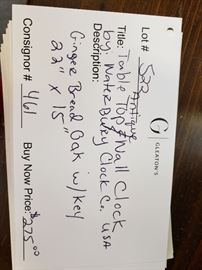 G
GLEATON'S
Lot # 522
Title: Table Top & Wall Clock
Antique
by: Waterbury Clock Co. USA
Description:
Ginger Bread Oak w/key
22" x 15"
Consignor # 461 Buy Now Price: $275.00